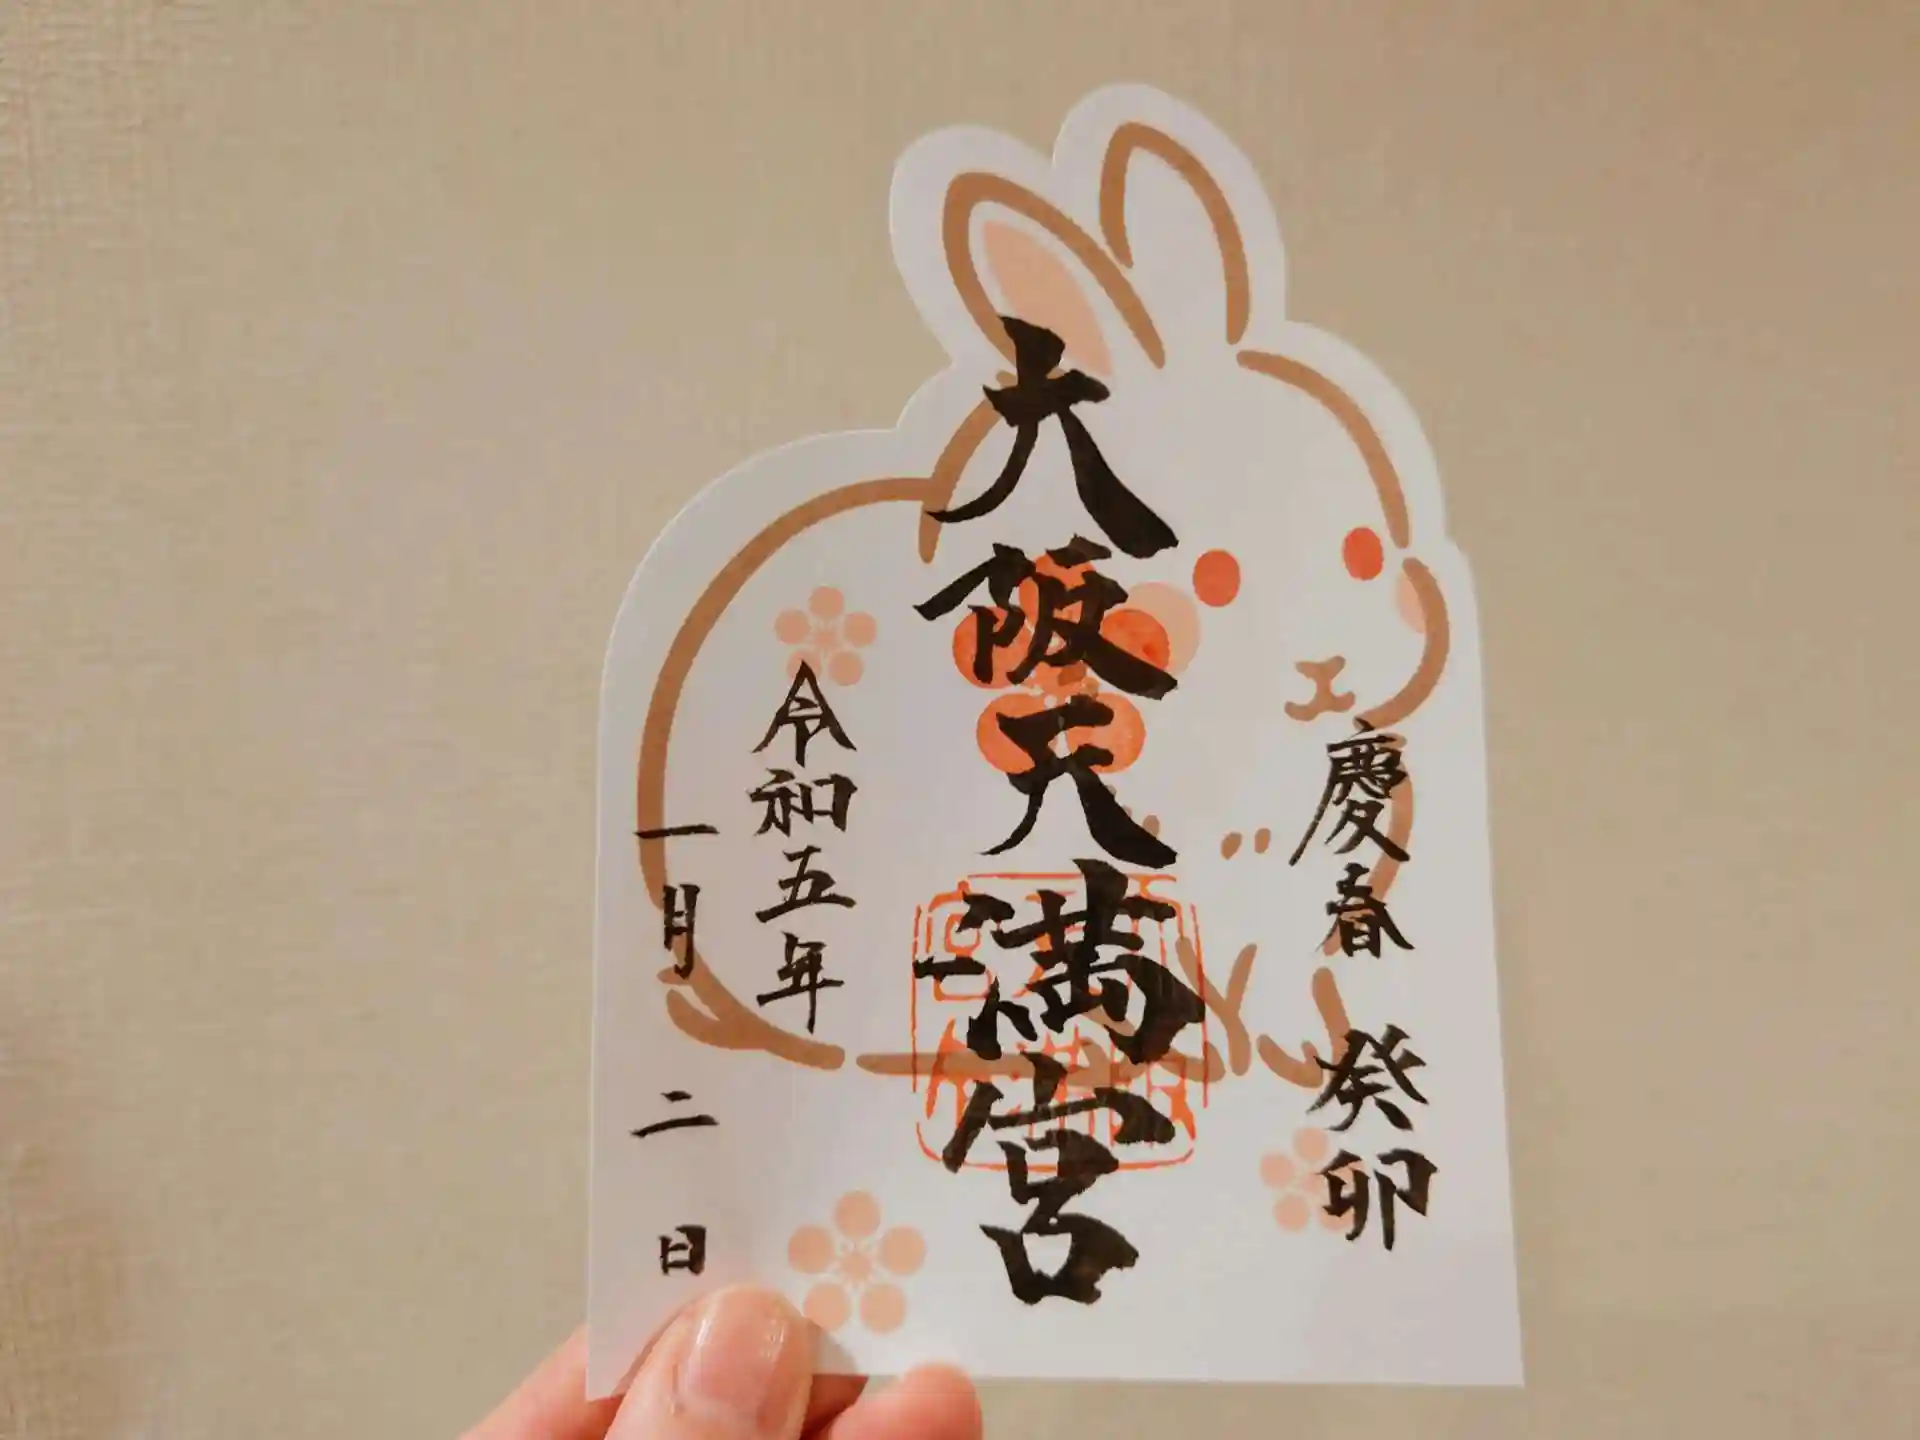 慶春　癸卯
大阪天満宮
令和五年
一月二日